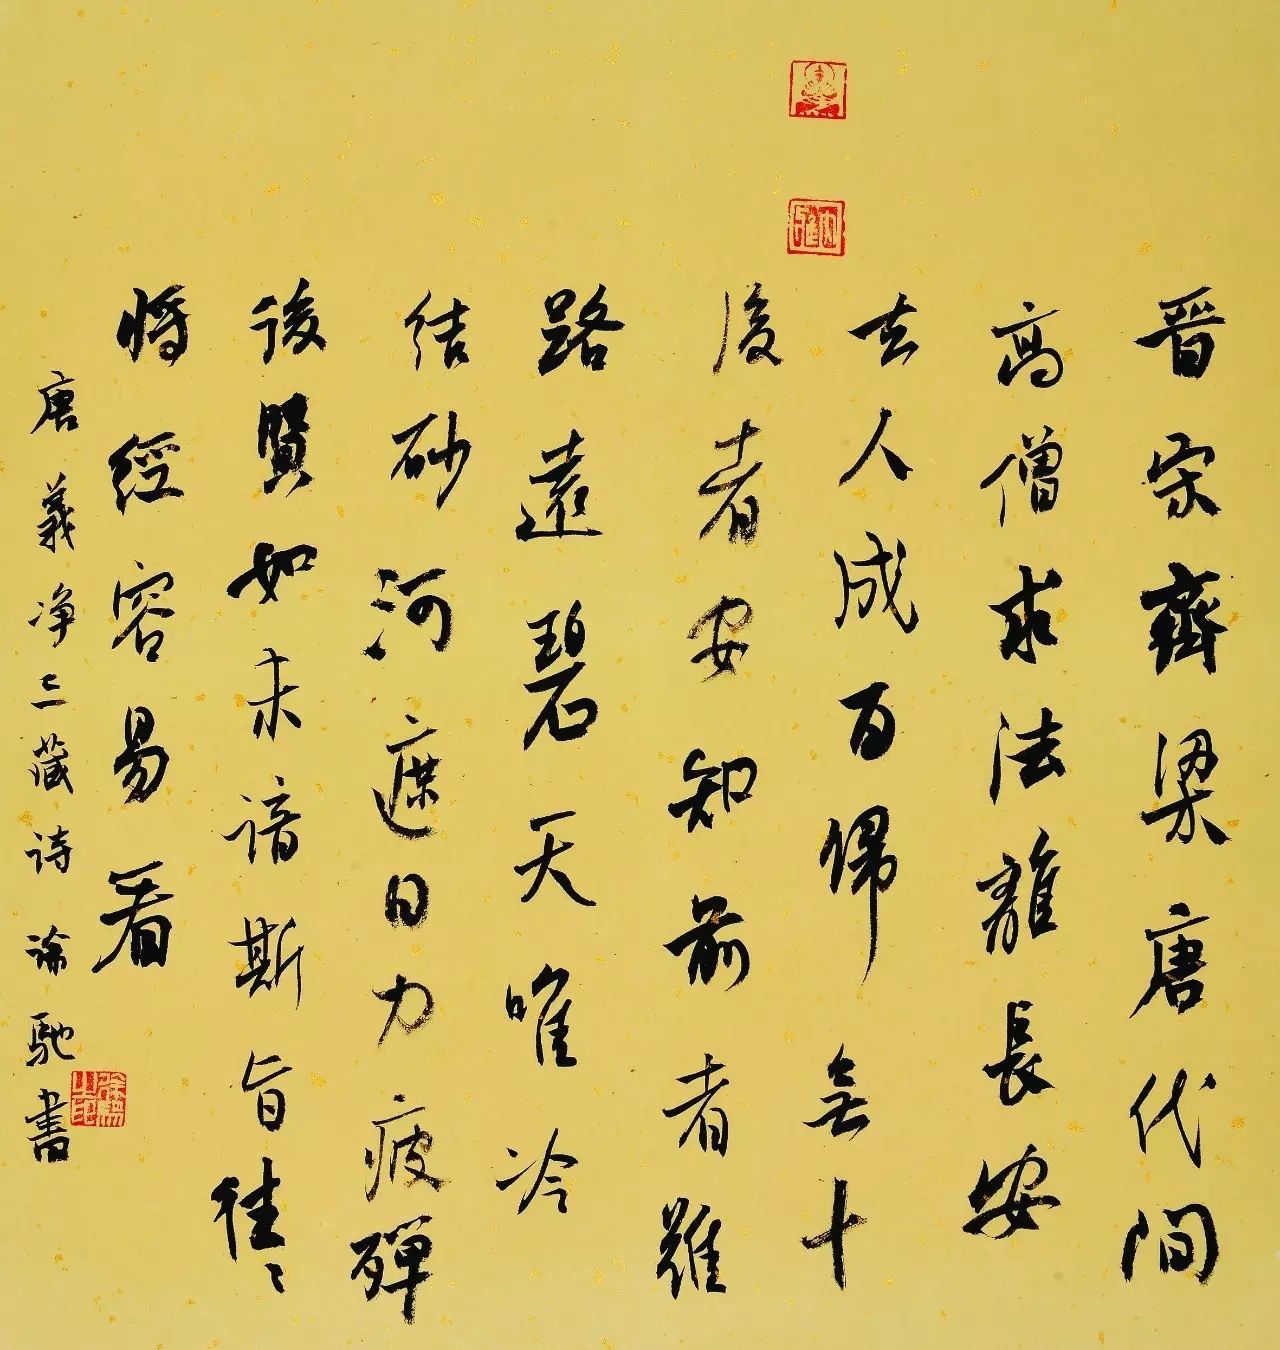 晋宋齊梁唐代間
高僧求法離長安
去人成百歸無十
後者安知前者難
路遠碧天唯冷
结砂河遮日力疲殫
後賢如未諳斯旨往々
将經容易看
唐義净三藏诗 馳書